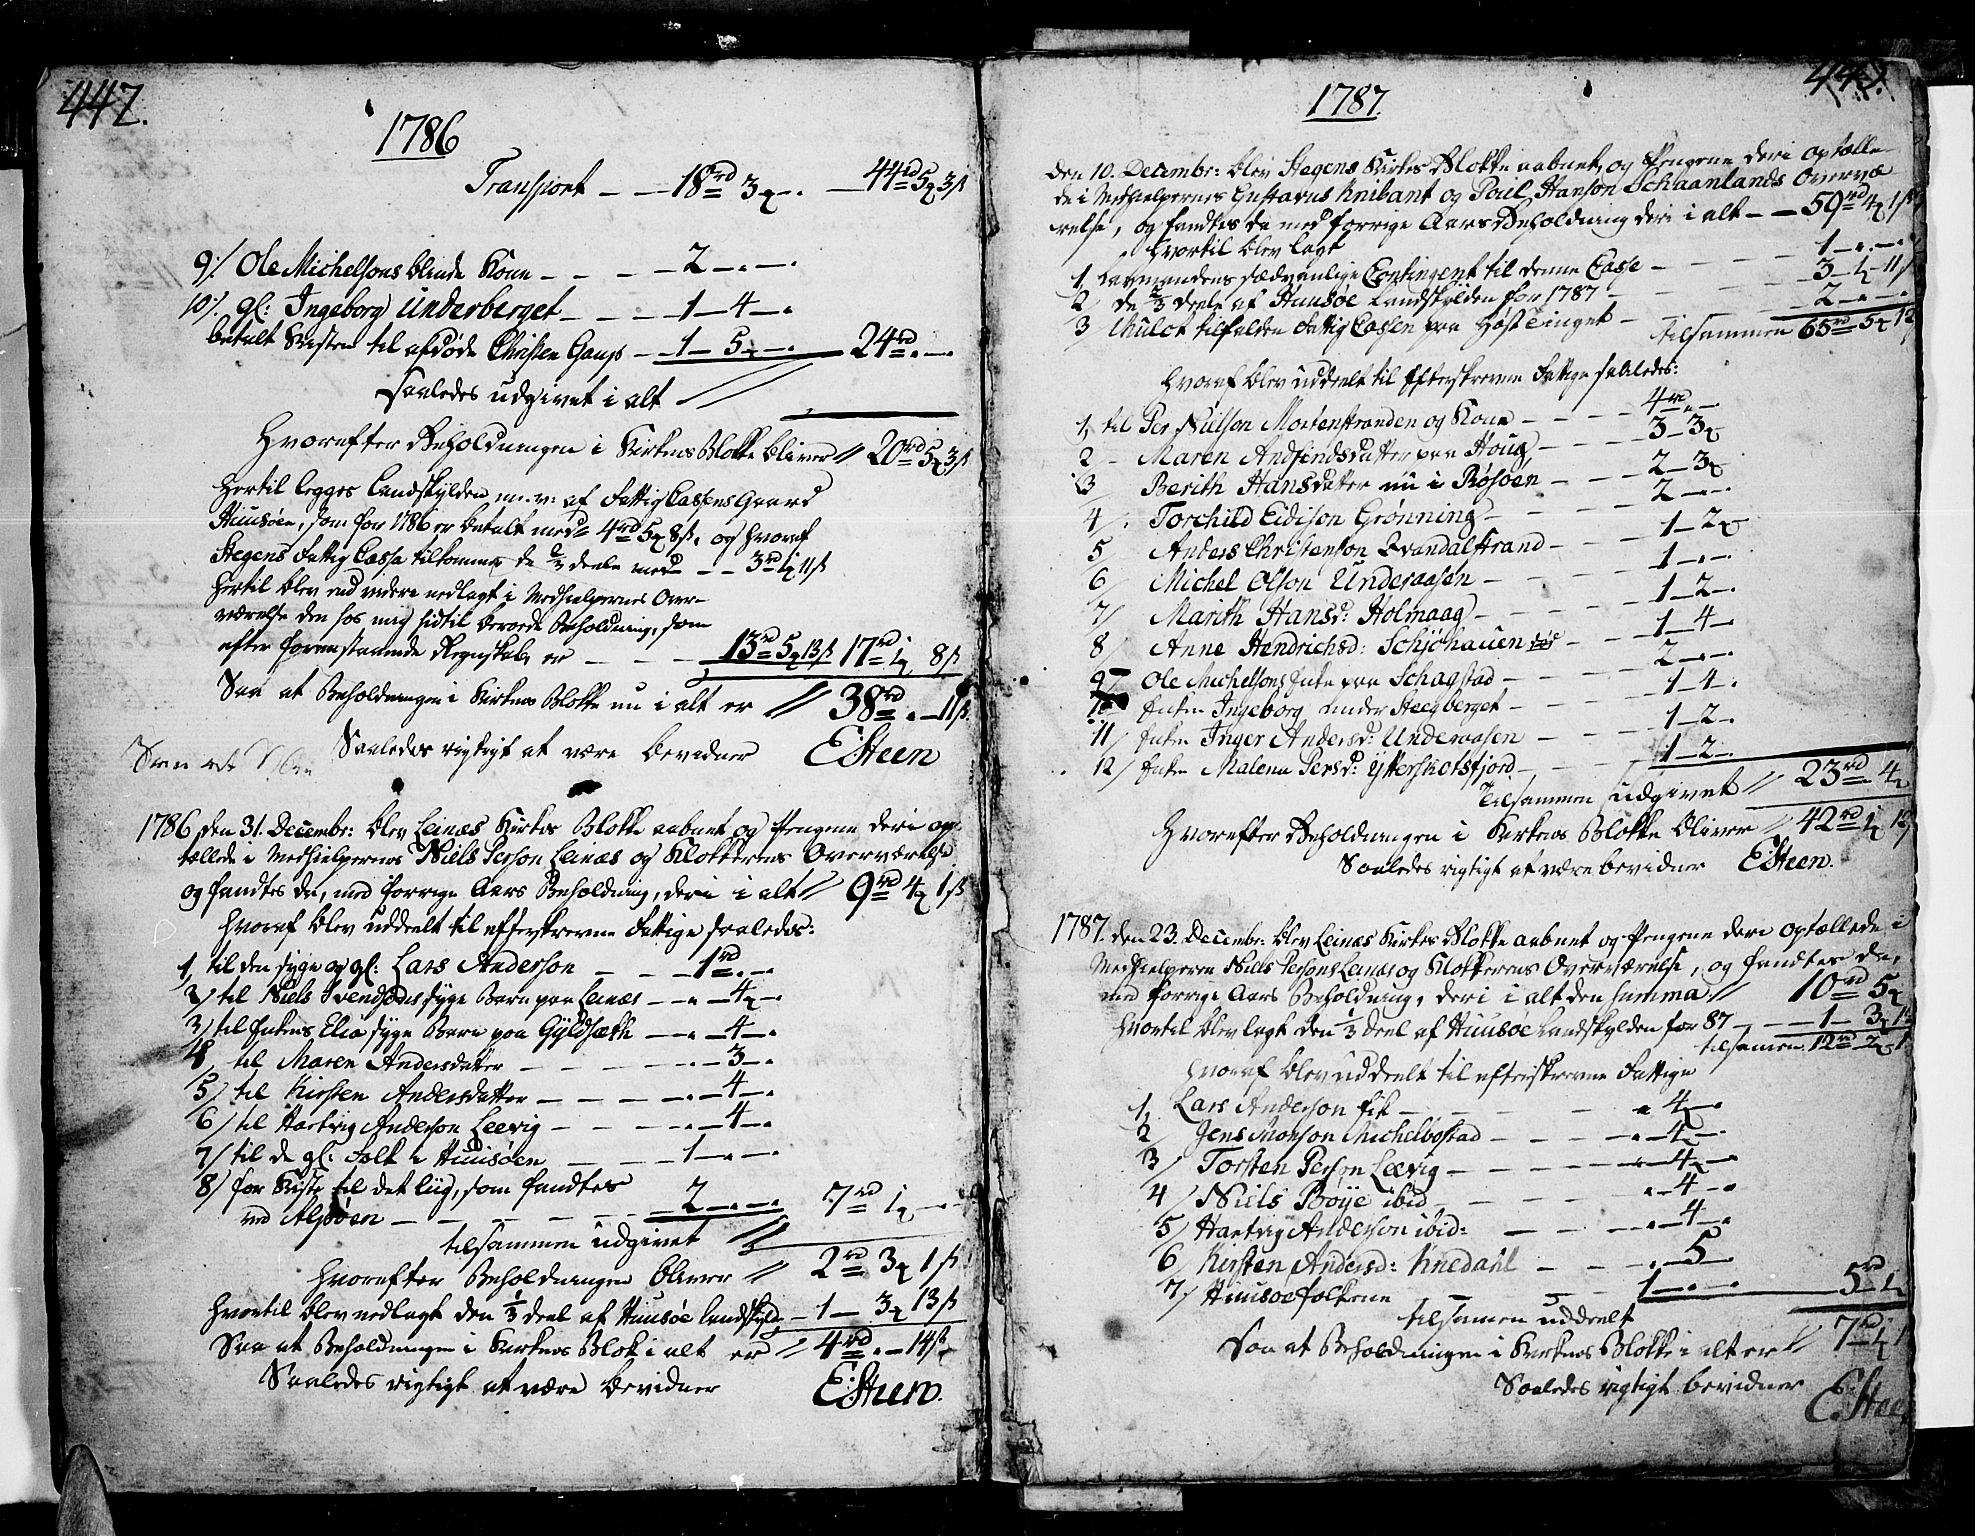 447.
1786
Transport — — 18rd 3 — . — 44rd 5 3ß
9/ Ole Michelsons blinde Kone — — — 2 — . — .
10/. gl: Ingeborg Underberget — — — 1 — 4 — .
betalt Kisten til afdøde Christen Gaups — 1 — 5 — . 24rd . — .
Saaledes udgivet i alt
Hvorefter Beholdningen i Kirkens Blokke bliver // 20rd 5 3ß
Hertil legges Landskylden af Fattig Cassens Gaard
Huusøen, som for 1786 er betalt med 4rd 5 8ß, og hvoraf
Stegens Fattig Casse tilkommer de 2/3 deele med — — 3rd 1 11ß
Hertil blev end videre nedlagt i Medhielpernes Over-
værelse den hos mig hidtil beroede Beholdning, som
efter foranstaaende Regnskab er — — — 13rd 5 13ß 17rd 1 8ß
Saa at Beholdningen i Kirkens Blokke nu i alt er // 38rd . — 11ß.
Saaledes rigtigt at være bevidner ESteen
Saa at
1786, den 31. Decembr: blev Leinæs Kirkes Blokke aabnet og Pengene deri op-
tællede i Medhielpernes Niels Person Leinæs og Klokkerens Overværelse
og fandtes da, med forrige Aars Beholdning, deri i alt // 9rd 4 1ß
Hvoraf blev uddelt til efterskrevne Fattige saaledes:
1, til den syge og gl: Lars Anderson — — — 1rd . — .
2/ til Niels Svendsøns syge Barn paa Leinæs — — . — 4 — .
3/ til Enkens Eliæ syge Barn paa Gyldsæth — . — 4 — .
4, til Maren Andersdatter — — — — . — 3 — .
5/ til Kirsten Andersdatter — — — — . — 4 — .
6/ til Hartvig Anderson Leevig — — — . — 4 — .
7/ til de gl: Folk i Huusøen — — — 1 — . — .
8/ for Kiste til det liig, som fandtes
ved Alpøen — — — — 2 — . — . 7rd 1 — .
tilsammen udgivet //
Hvorefter Beholdningen bliver // 2rd 3 1ß
Hvortil blev nedlagt den 1/3 deel af Huusøe landskyld — 1 — 3 13ß
Saa at Beholdningen i Kirkens Blok i alt er // 4rd . — 14ß
Saaledes rigtigt at være bevidner ESteen.
448.
1787.
Den 10. Decembr: blev Stegens Kirkes Blokke aabnet, og Pengene deri optælle-
de i Medhielpernes Gustavus Knibant og Poul Hanson Schaanlands Overvæ-
relse, og fandtes da med forrige Aars Beholdning deri i alt — — 59rd 4 1ß
Hvortil blev lagt
1, Lavmandens sædvanlige Contingent til denne Casse — — — 1 — . — .
2 de 2/3 deele af Huusøe Landskylden for 1787 — — — 3 — 1 — 11ß
3 Mulct tilfalden Fattig Cassen paa Høst Tinget — — 2 — . — .
tilsammen 65rd 5 12
Hvoraf blev uddeelt til Efterskrevne Fattige saaledes:
1, til Per Nielson Mortenstranden og Kone — — — 4rd . — .
2 — Maren Andfindsdatter paa Houg — — — 3 — 3
3 Berith Hansdatter nu i Røsøen — — — 2 — 3
4/. Torchild Eidison Grønning — — — 2 — . — .
5 Anders Christenson Brandalstrand — — — 1 — 2
6/ Michel Olson Underaasen — — — 1 — . — .
7/ Marith Hansd: Holmaag — — — 1 — 2 — .
8/ Anne Hendrichsd: Schjøhauen — — 1 — 4 — .
9 Ole Michelsons Enke paa Schagstad — — — 2 — . — .
10 Enken Ingeborg under Steegberget — — — 1 — 4 — .
11/ Enken Inger Andersd: Underaasen — — — 1 — 2 — .
12/ Enken Malena Persd: Ytterskotsfjord — — — 1 — 2 — .
Tilsammen udgivet // 23rd 4
Hvorefter Beholdningen i Kirkens Blokke bliver // 42rd 1 12
Saaledes rigtigt at være bevidner ESteen.
1787. den 23. Decembr: blev Leinæs Kirkes Blokke aabnet og Pengene deri optællede i
Medhielperen Niels Persons Leinæs og Klokkerens Overværelse, og fandtes da,
med forrige Aars Beholdning, deri i alt den Summa // 10rd 5
Hvortil blev lagt den 1/3 deel af Huusøe Landskylden for 87 — — 1 — 3 13
tilsamen 12rd 2 1
Hvoraf blev uddeelt til efterskrevne Fattige
1, Lars Anderson fik — — — — . 4 — .
2/ Jens Monson Michelbostad — — — . — 4 — .
3/ Torsten Person Leevig — — — — . — 4 — .
4/ Niels Boye ibid — — — . — 4 — .
5/ Hartvig Anderson ibid: — — — . — 4 — .
6/ Kirsten Andersd: Knedahl — — . — 5 — .
7/ Huusøefolkene — — — 1 — . — . — 5rd 1
tilsamen uddeelt
Saa at Beholdningen i Kirkens Blokke i alt er // 7rd 1 1
Saaledes rigtigt bevidner E. Stee